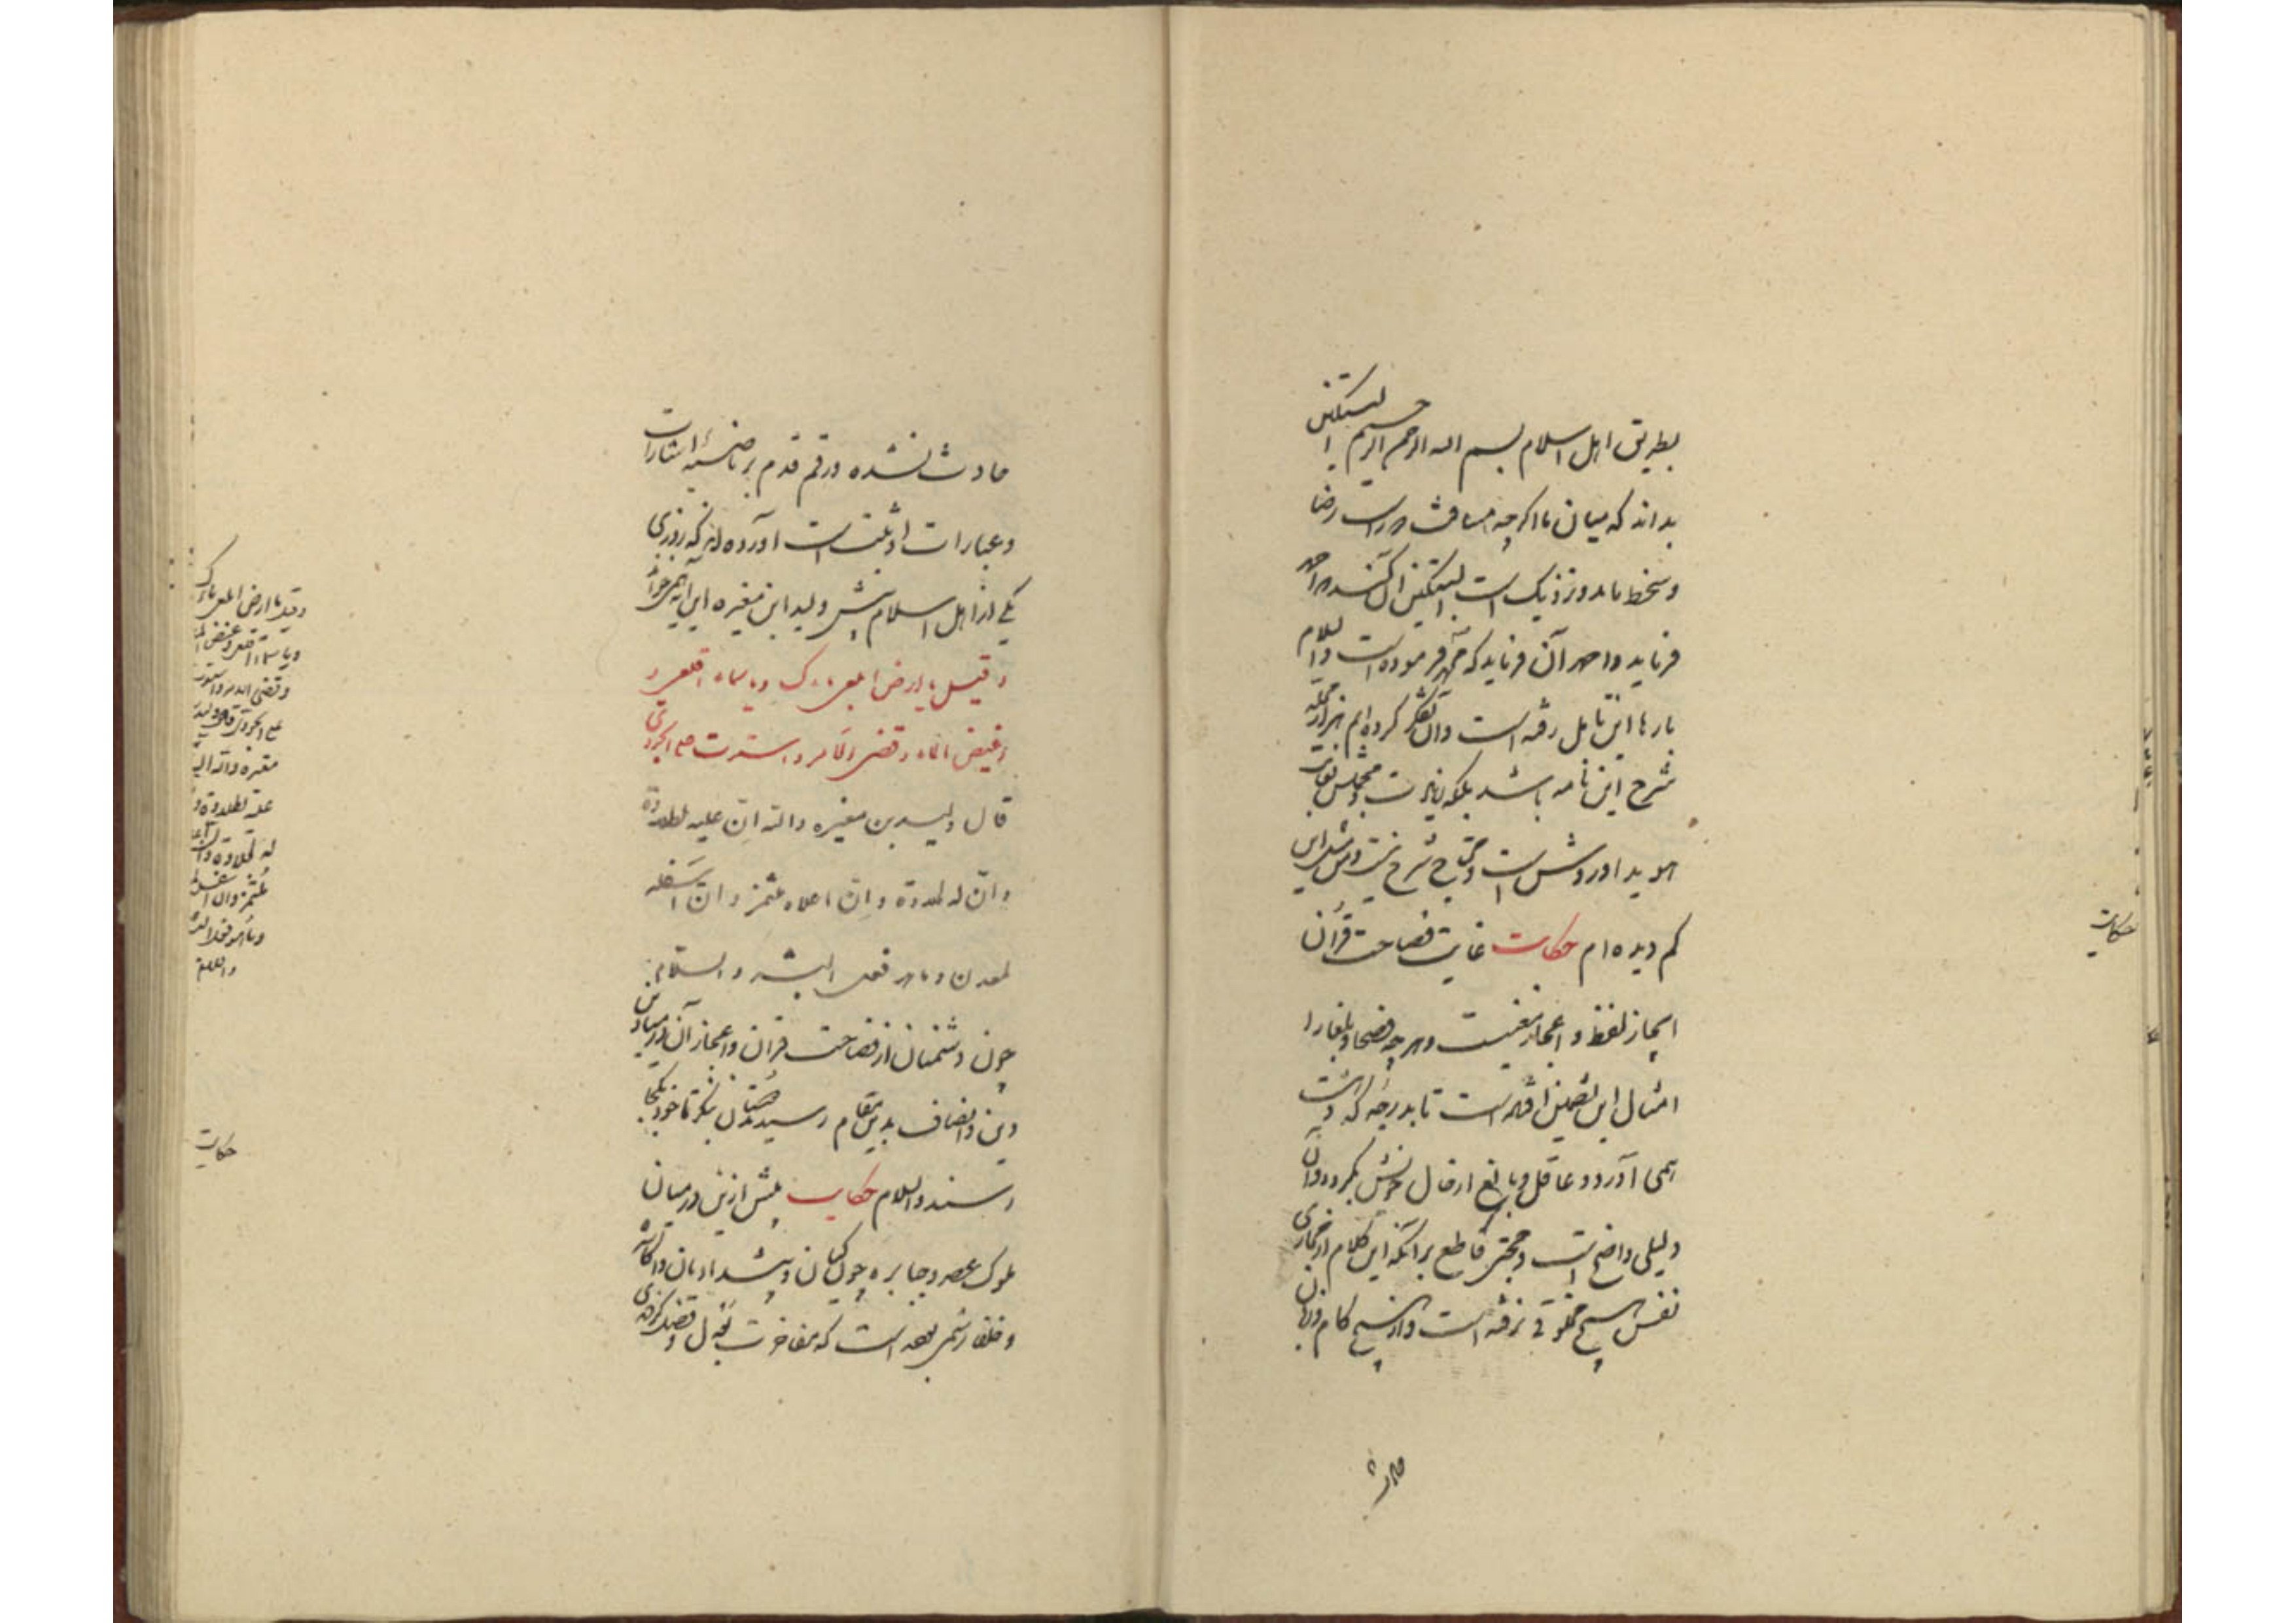 بطریق اهل اسلام بسم الله الرحمن الرحیم
بداند که میان ما اگرچه مسافت دورست رضا
و سخط ما بدو نزدیک است
فرماید و احمد آن فرماید که فرموده است والسلام
بارها این تأمل رفته است و تفکر کرده‌ام
شرح این نامه باشد بلکه
هوید او روشن است و محتاج شرح نیست و مثل این
کم دیده‌ام حکایت غایت فصاحت قرآن
ایجاز لفظ و اعجاز معنیست و هرچه فصحا و بلغا را
امثال این تضمین افتاده است تا بدرجه که دهشت
همی آورد و عاقل و بالغ از حال خویش بگردد و آن
دلیلی واضح است و حجتی قاطع بر آنکه این کلام از مجاری
نفس هیچ مخلوقی نرفته است و از هیچ کام و زبان
حادث
حکایت
حادث نشده و رقم قدم بر ناصیهٔ اشارات
و عبارات او مثبت است آورده‌اند که روزی
یکی از اهل اسلام پیش ولید ابن مغیره این آیه همی خواند
و قیل یا ارض ابلعی ماءک و یا سماء اقلعی و
غیض الماء و قضی الامر و استوت علی الجودی
قال ولید بن مغیره والله ان علیه لطلاوة
وان له لحلاوة وان اعلاه لمثمر وان اسفله
لمعدق وما هو قول البشر والسلام
چون دشمنان از فصاحت قرآن و اعجاز آن در میادین
دین و انصاف بدین مقام رسیدند دوستان بنگر تا خود بکجا
رسند والسلام حکایت پیش ازین در میان
ملوک عصر و جبابره چون کیان و پیشدادیان و اکاسره
و خلفا رسمی بوده است که مفاخرت بعدل و فضل کردندی
وقیل یا ارض ابلعی ماءک
ویاسماء اقلعی وغیض الماء
وقضی الامر واستوت
علی الجودی قال ولید
مغیره والله ان
علیه لطلاوة و
له لحلاوة وان
لمثمر وان اسفله
وما هو قول البشر
والسلام
حکایت